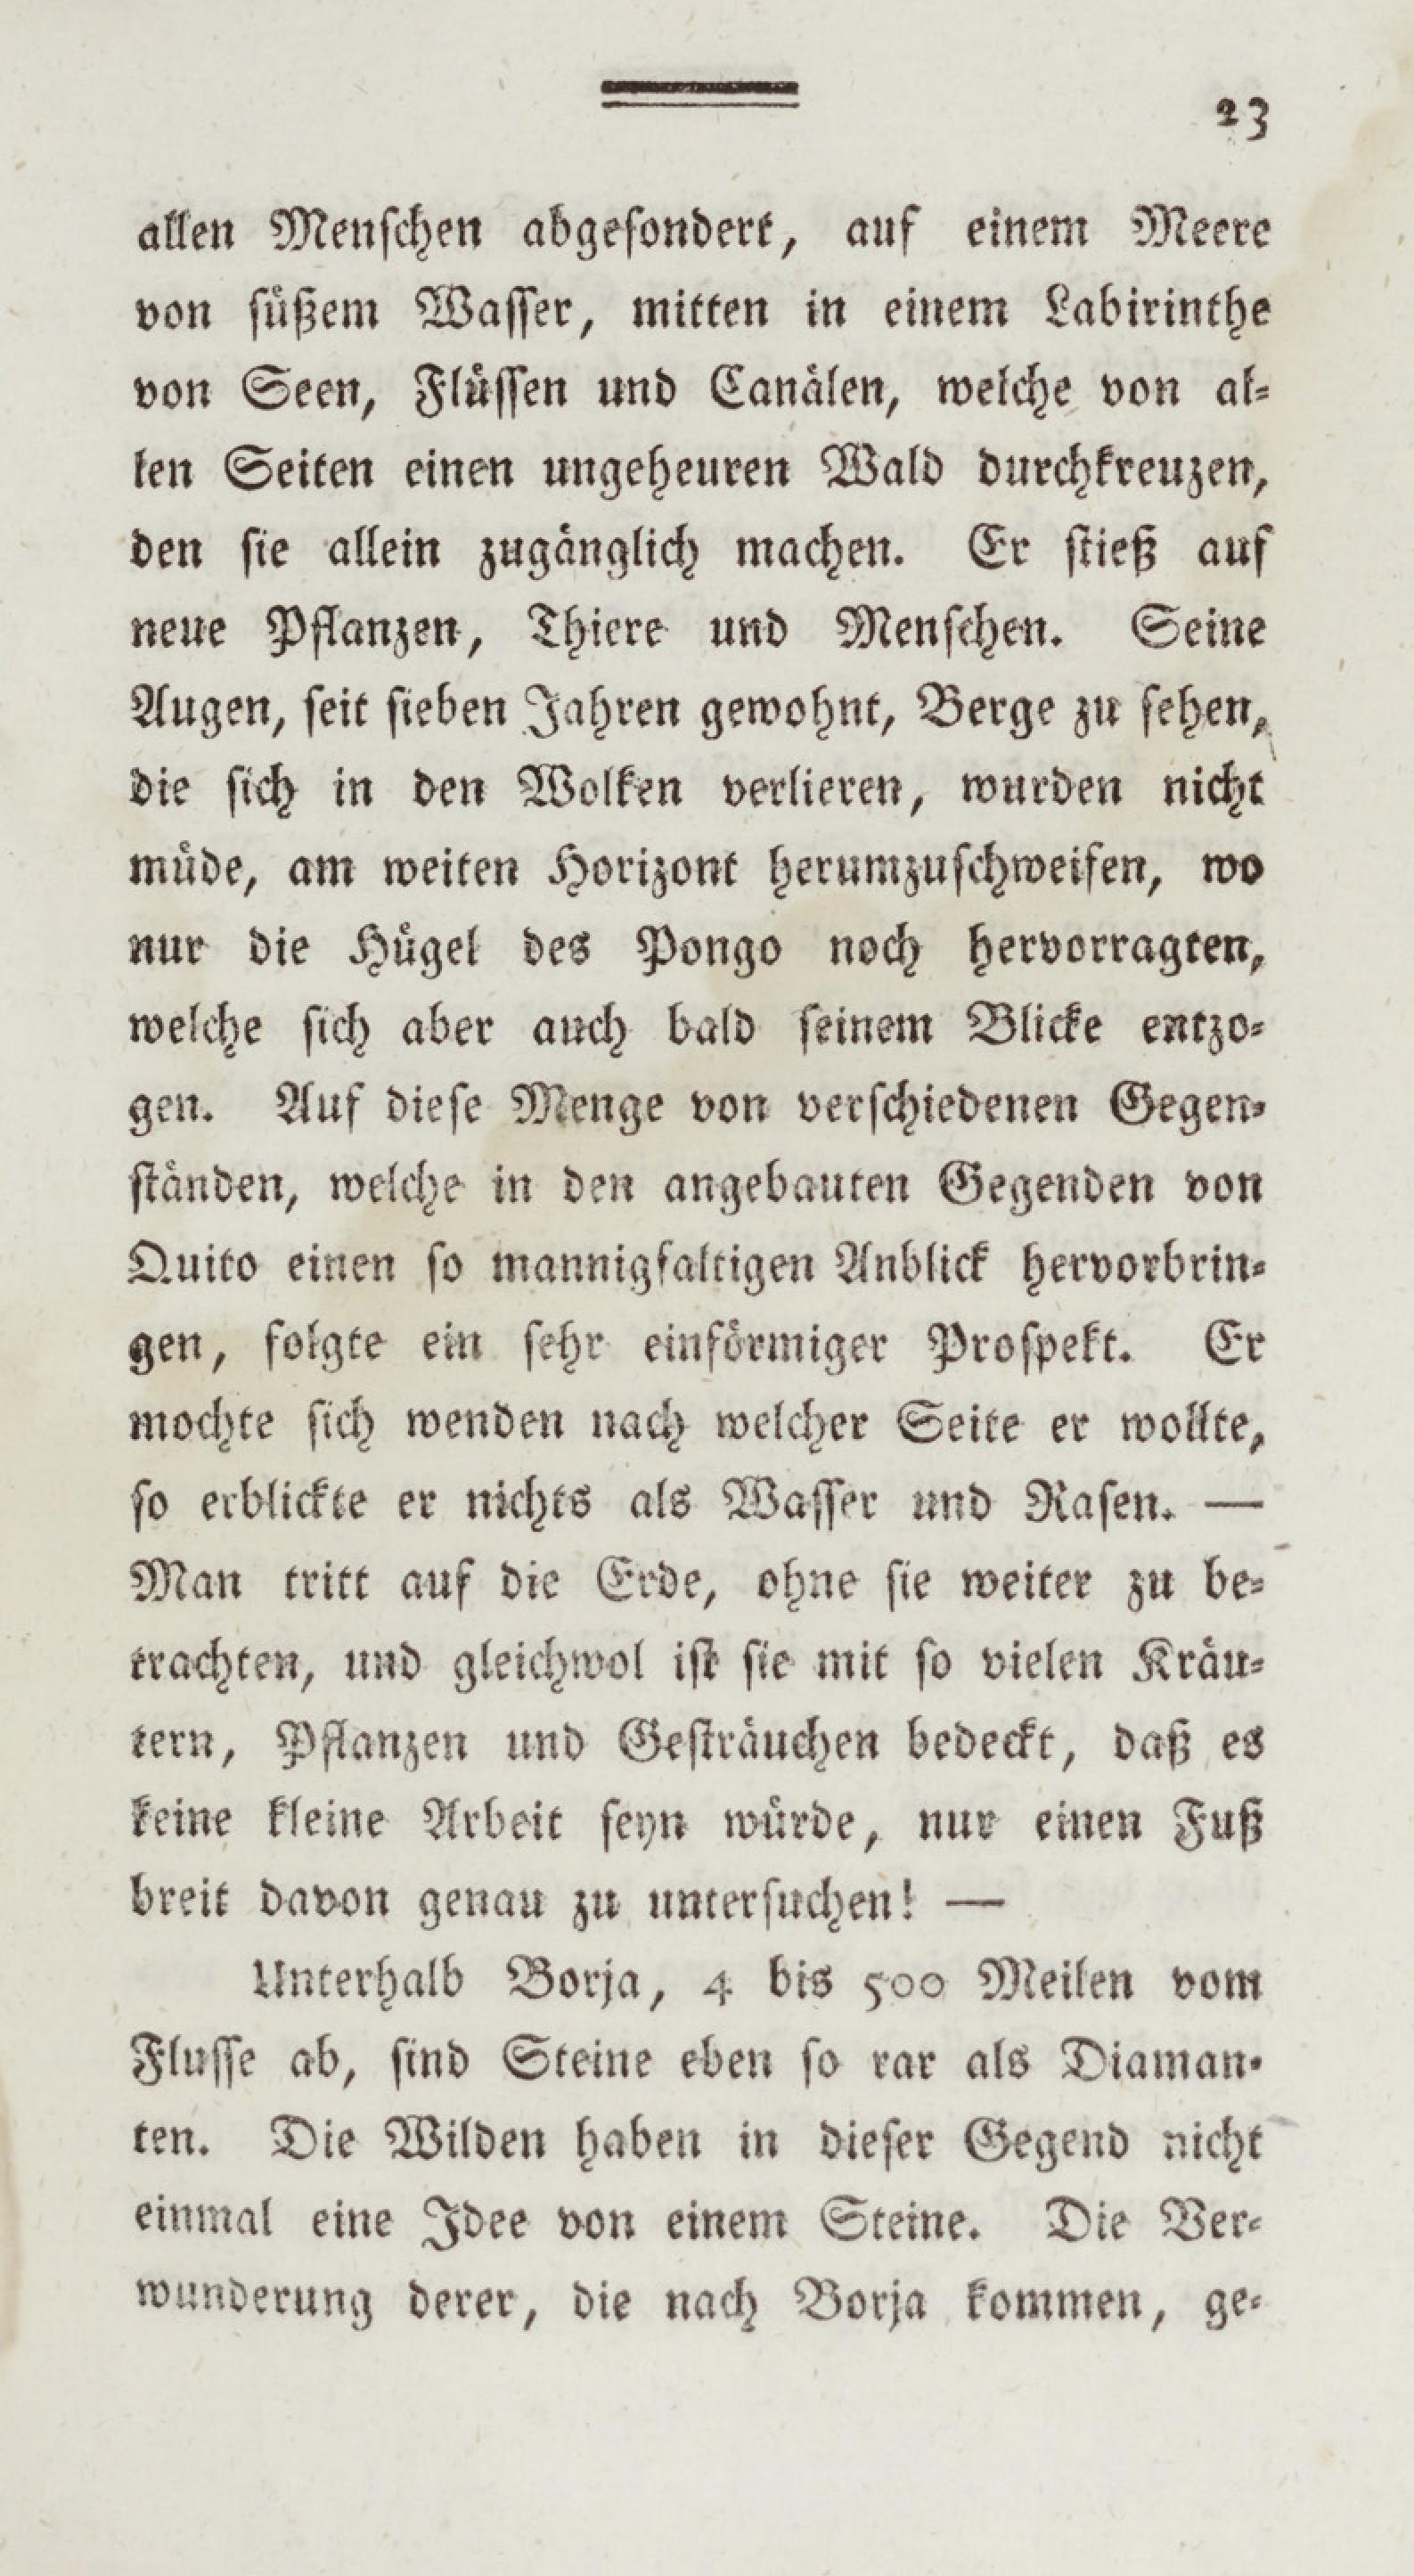 23
allen Menschen abgesondert, auf einem Meere
von süßem Wasser, mitten in einem Labirinthe
von Seen, Flüssen und Canälen, welche von al-
len Seiten einen ungeheuren Wald durchkreuzen,
den sie allein zugänglich machen. Er stieß auf
neue Pflanzen, Thiere und Menschen. Seine
Augen, seit sieben Jahren gewohnt, Berge zu sehen,
die sich in den Wolken verlieren, wurden nicht
müde, am weiten Horizont herumzuschweifen, wo
nur die Hügel des Pongo noch hervorragten,
welche sich aber auch bald seinem Blicke entzo-
gen. Auf diese Menge von verschiedenen Gegen-
ständen, welche in den angebauten Gegenden von
Quito einen so mannigfaltigen Anblick hervorbrin-
gen, folgte ein sehr einförmiger Prospekt. Er
mochte sich wenden nach welcher Seite er wollte,
so erblickte er nichts als Wasser und Rasen. —
Man tritt auf die Erde, ohne sie weiter zu be-
trachten, und gleichwol ist sie mit so vielen Kräu-
tern, Pflanzen und Gesträuchen bedeckt, daß es
keine kleine Arbeit seyn würde, nur einen Fuß
breit davon genau zu untersuchen! —
Unterhalb Borja, 4 bis 500 Meilen vom
Flusse ab, sind Steine eben so rar als Diaman-
ten. Die Wilden haben in dieser Gegend nicht
einmal eine Idee von einem Steine. Die Ver-
wunderung derer, die nach Borja kommen, ge-